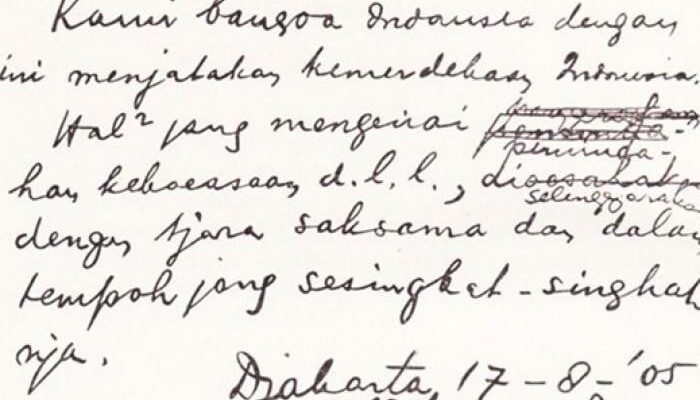 Kami bangsa Indonesia dengan
ini menjatakan kemerdekaan Indonesia.
Hal² jang mengenai
peminda-
han kekoeasaan d.l.l., dioesahaka
selenggaraka
dengan tjara saksama dan dalam
tempoh jang sesingkat-singkat
nja.
Djakarta, 17-8-'05